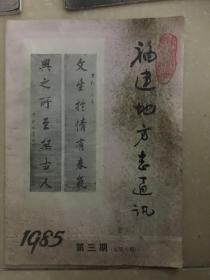 福建地方志通讯
文生於情有春氣
興之所至無古人
1985
第三期